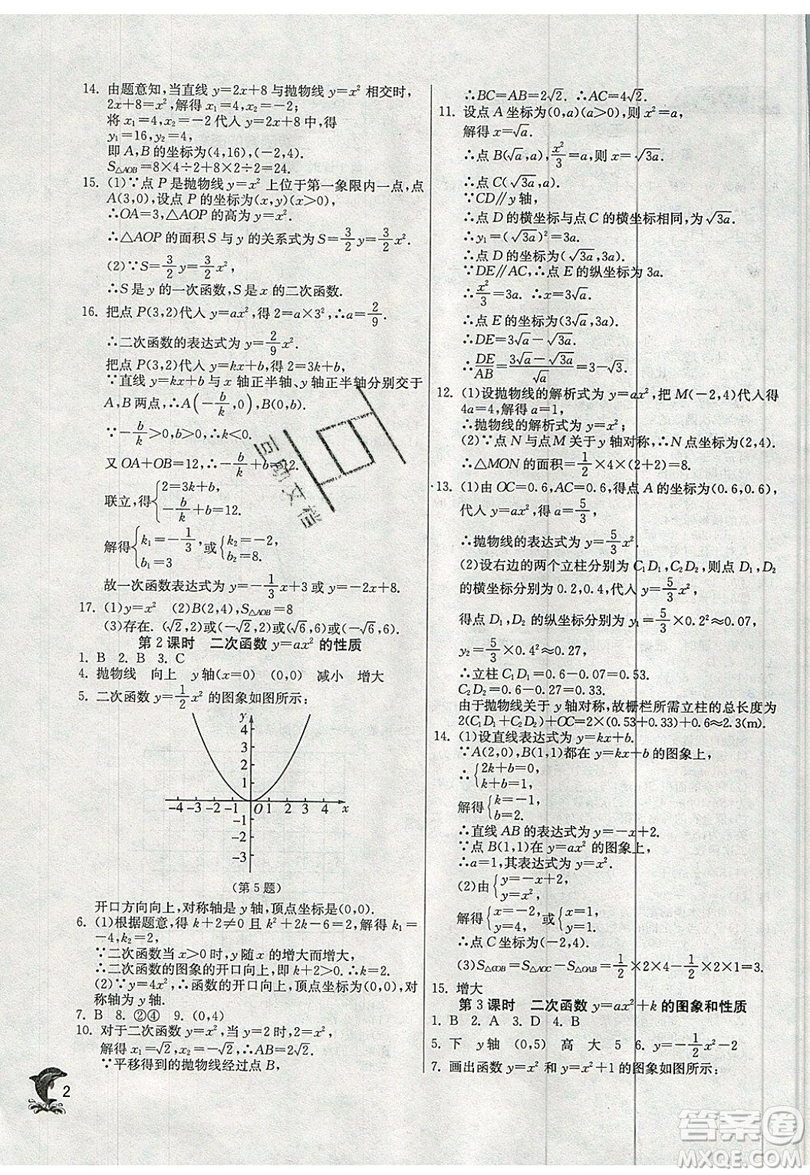 14. 由题意知,当直线 y=2x+8 与抛物线 y=x² 相交时,
2x+8=x²,解得 x₁=4,x₂=-2;
将 x₁=4,x₂=-2 代入 y=2x+8 中,得
y₁=16,y₂=4,
即 A,B 的坐标为(4,16),(-2,4).
S△AOB=8×4÷2+8×2÷2=24.
15. (1)∵点 P 是抛物线 y=x² 上位于第一象限内一点,点
A(3,0),设点 P 的坐标为(x,y)(x>0),
∴OA=3,△AOP 的高为 y=x².
∴△AOP 的面积 S 与 y 的关系式为 S=3/2 y=3/2 x².
(2)∵S=3/2 y=3/2 x²,
∴S 是 y 的一次函数,S 是 x 的二次函数.
16. 把点 P(3,2)代入 y=ax²,得 2=a×3²,∴a=2/9.
∴二次函数的表达式为 y=2/9 x².
把点 P(3,2)代入 y=kx+b,得 2=3k+b,
∵直线 y=kx+b 与 x 轴正半轴、y 轴正半轴分别交于
A,B 两点,∴A(-b/k,0),B(0,b).
∵-b/k>0,b>0,∴k<0.
又 OA+OB=12,∴-b/k+b=12.
联立,得{2=3k+b, -b/k+b=12.
解得{k₁=-1/3, b₁=3,或{k₂=-2, b₂=8.
故一次函数表达式为 y=-1/3 x+3 或 y=-2x+8.
17. (1)y=x² (2)S△AOB=8
(3)存在. (√2,2)或(-√2,2)或(√6,6)或(-√6,6)
第 2 课时 二次函数 y=ax² 的性质
1. B 2. B 3. C
4. 抛物线 向上 y 轴(x=0) (0,0) 减小 增大
5. 二次函数 y=1/2 x² 的图象如图所示:
y
4
3
2
1
-4 -3 -2 -1 O 1 2 3 4 x
-1
-2
-3
(第 5 题)
开口方向向上,对称轴为 y 轴,顶点坐标为(0,0).
6. (1)根据题意,得 k+2≠0 且 k²+k-4=2,解得 k₁=
-3,k₂=2.
∵二次函数当 x>0 时,y 随 x 的增大而增大,
∴二次函数的图象的开口向上,即 k+2>0,∴k=2.
(2)由(1)知,二次函数的图象的顶点坐标为(0,0),对
称轴为 y 轴.
7. B 8. ②④ 9. (0,4)
10. 对于二次函数 y=x²,当 y=2 时,2=x²,
解得 x=±√2,∴AB=√2-(-√2)=2√2.
∵平移得到的抛物线经过点 B,
∴BC=AB=2√2. ∴AC=4√2.
11. 设点 A 坐标为(0,a)(a>0),则 x²=a,
解得 x=√a.
∴点 B(√a,a),x²/3=a,则 x=√3a.
∴点 C(√3a,a).
∵CD∥y 轴,
∴点 D 的横坐标与点 C 的横坐标相同,为√3a.
∴y₁=(√3a)²=3a.
∴点 D 的坐标为(√3a,3a).
∵DE∥AC,∴点 E 的纵坐标为 3a.
∴x²/3=3a. ∴x=3√a.
∴点 E 的坐标为(3√a,3a).
∴DE=3√a-√3a.
∴DE/AB=(3√a-√3a)/√a=3-√3.
12. (1)设抛物线的解析式为 y=ax²,把 M(-2,4)代入得
4a=4,解得 a=1,
∴抛物线的解析式为 y=x²;
(2)∵点 N 与点 M 关于 y 轴对称,∴点 N(2,4).
∴△MON 的面积=1/2×4×(2+2)=8.
13. (1)由 OC=0.6,AC=0.6,得点 A 的坐标为(0.6,0.6),
代入 y=ax²,得 a=5/3,
∴抛物线的表达式为 y=5/3 x².
(2)设右边的两个立柱分别为 C₁D₁,C₂D₂,则点 D₁,
D₂的横坐标分别为 0.2,0.4,代入 y=5/3 x²,
得点 D₁,D₂的纵坐标分别为 y₁=5/3×0.2²≈0.07,
y₂=5/3×0.4²≈0.27,
∴立柱 C₁D₁=0.6-0.07=0.53,
C₂D₂=0.6-0.27=0.33.
由于抛物线关于 y 轴对称,故栅栏所需立柱的总长度为
2(C₁D₁+C₂D₂)+OC=2×(0.53+0.33)+0.6≈2.3(m).
14. (1)设直线表达式为 y=kx+b.
∵A(2,0),B(1,1)都在 y=kx+b 的图象上,
∴{2k+b=0, k+b=1,
解得{k=-1, b=2.
∴直线 AB 的表达式为 y=-x+2.
∵点 B(1,1)在 y=ax² 的图象上,
∴a=1,其表达式为 y=x².
(2)由{y=-x+2, y=x²,
解得{x=-2, y=4,或{x=1, y=1.
∴点 C 坐标为(-2,4).
(3)S△COB=S△AOC-S△OAB=1/2×2×4-1/2×2×1=3.
15. 增大
第 3 课时 二次函数 y=ax²+k 的图象和性质
1. B 2. A 3. D 4. B
5. 下 y 轴 (0,5) 高 大 5 6. y=-1/2 x²-2
7. 画出函数 y=x² 和 y=x²+1 的图象如图所示:
2
答案卷
MXQE.COM